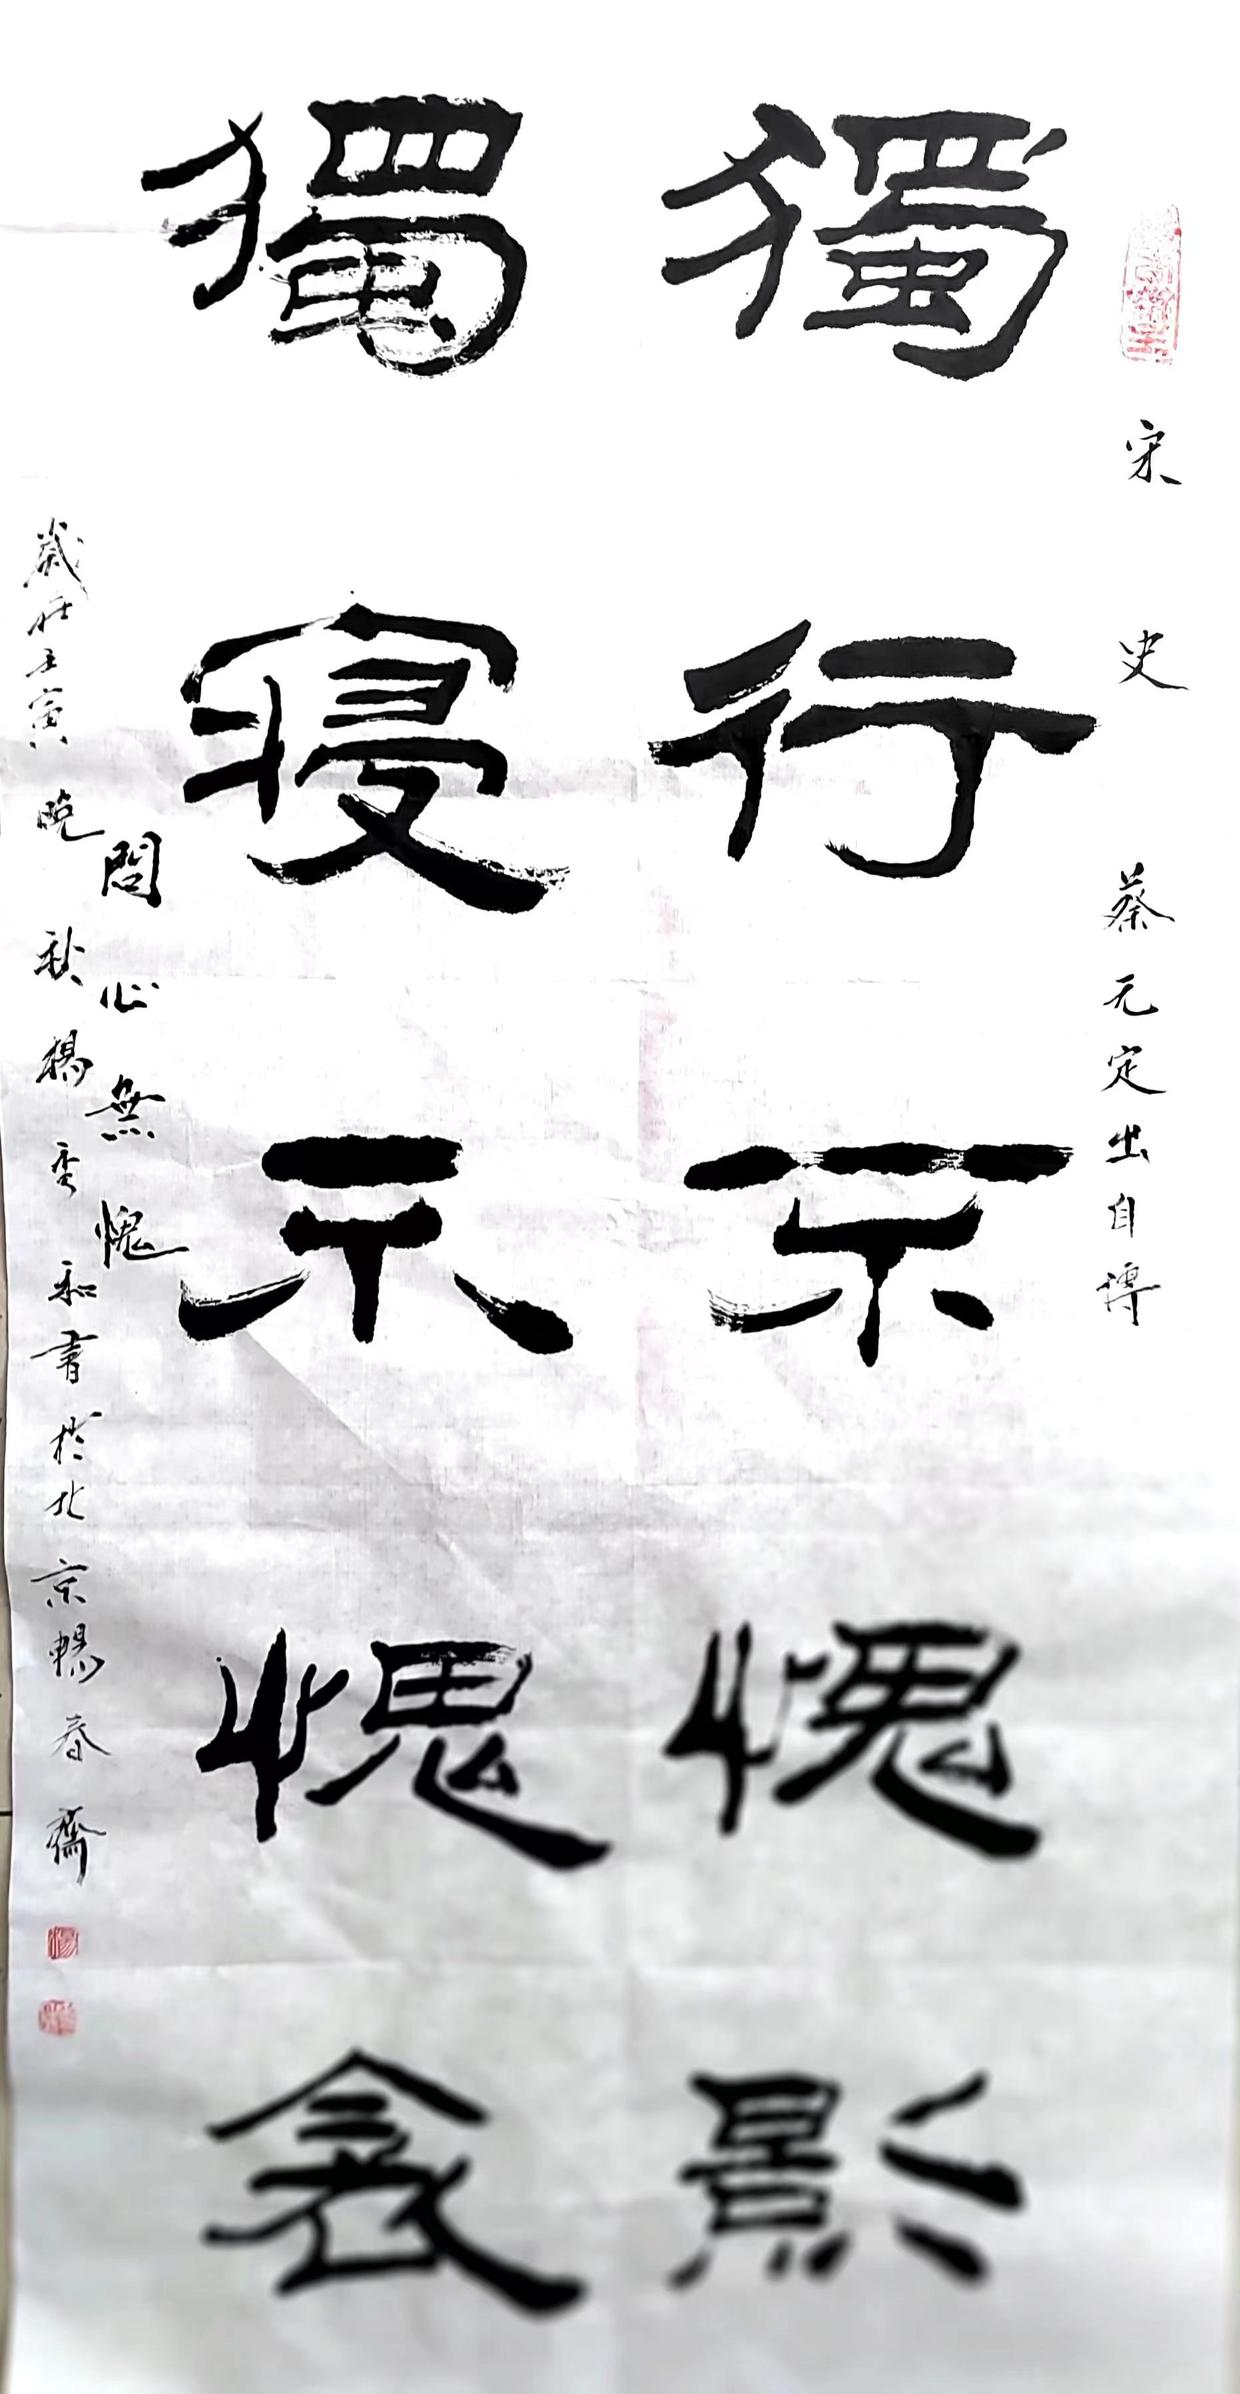 宋史 蔡元定出自傳
獨行不愧影
獨寢不愧衾
問心無愧
歲在壬寅晚秋楊和書於北京暢春齋